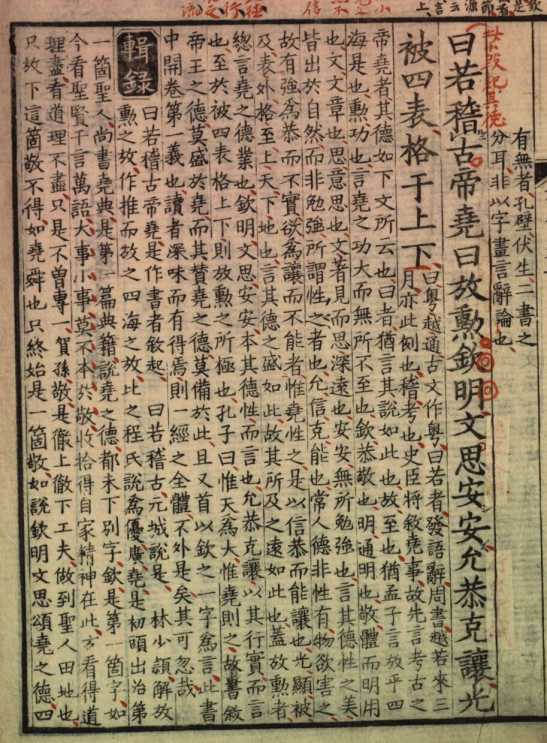 有無者孔壁伏生二書之
分耳非以字畫言辭論也
曰若稽古帝堯曰放勳欽明文思安安允恭克讓光
被四表格于上下
曰粤越通古文作粤曰若者發語辭周書越若來三
月亦此例也稽考也史臣將敘堯事故先言考古之
帝堯者其德如下文所云也曰者猶言其說如此也放至也猶孟子言放乎四
海是也勳功也言堯之功大而無所不至也欽恭敬也明通明也敬體而明用
也文文章也思意思也文著見而思深遠也安安無所勉強也言其德性之美
皆出於自然而非勉強所謂性之者也允信克能也常人德非性有物欲害之
故有強為恭而不實欲為讓而不能者惟堯性之是以信恭而能讓也光顯被
及表外格至上天下地也言其德之盛如此故其所及之遠如此也蓋放勲者
總言堯之德業也欽明文思安安本其德性而言也允恭克讓以其行實而言
也至於被四表格上下則放勲之所極也孔子曰惟天為大惟堯則之故書敘
帝王之德莫盛於堯而其贊堯之德莫備於此且又首以欽之一字為言此書
中開卷第一義也讀者深味而有得焉則一經之全體不外是矣其可忽哉
輯錄 曰若稽古帝堯是作書者敘起 曰若稽古元城說是 林少頴解放
勲之放作推而放之四海之放比之程氏說為優廣堯是初頭出治第
一箇聖人尚書堯典是第一篇典籍說堯之德都未下別字欽是第一箇字如
今看聖賢千言萬語大事小事莫不本於敬收拾得自家精神在此方看得道
理盡看道理不盡只是不曾專一賀孫敬是徹上徹下工夫做到聖人田地也
只放下這箇敬不得如堯舜也只終始是一箇敬如說欽明文思頌堯之德四